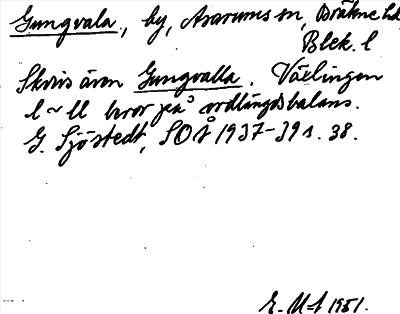 Gungvala, by, Asarums sn, Bräkne hd,
Blek. l
Skrivs även Gungvalla. Växlingen
l ~ ll beror på ordlängdsbalans.
G. Sjöstedt, SOÅ 1937-39 s. 38.
1951.